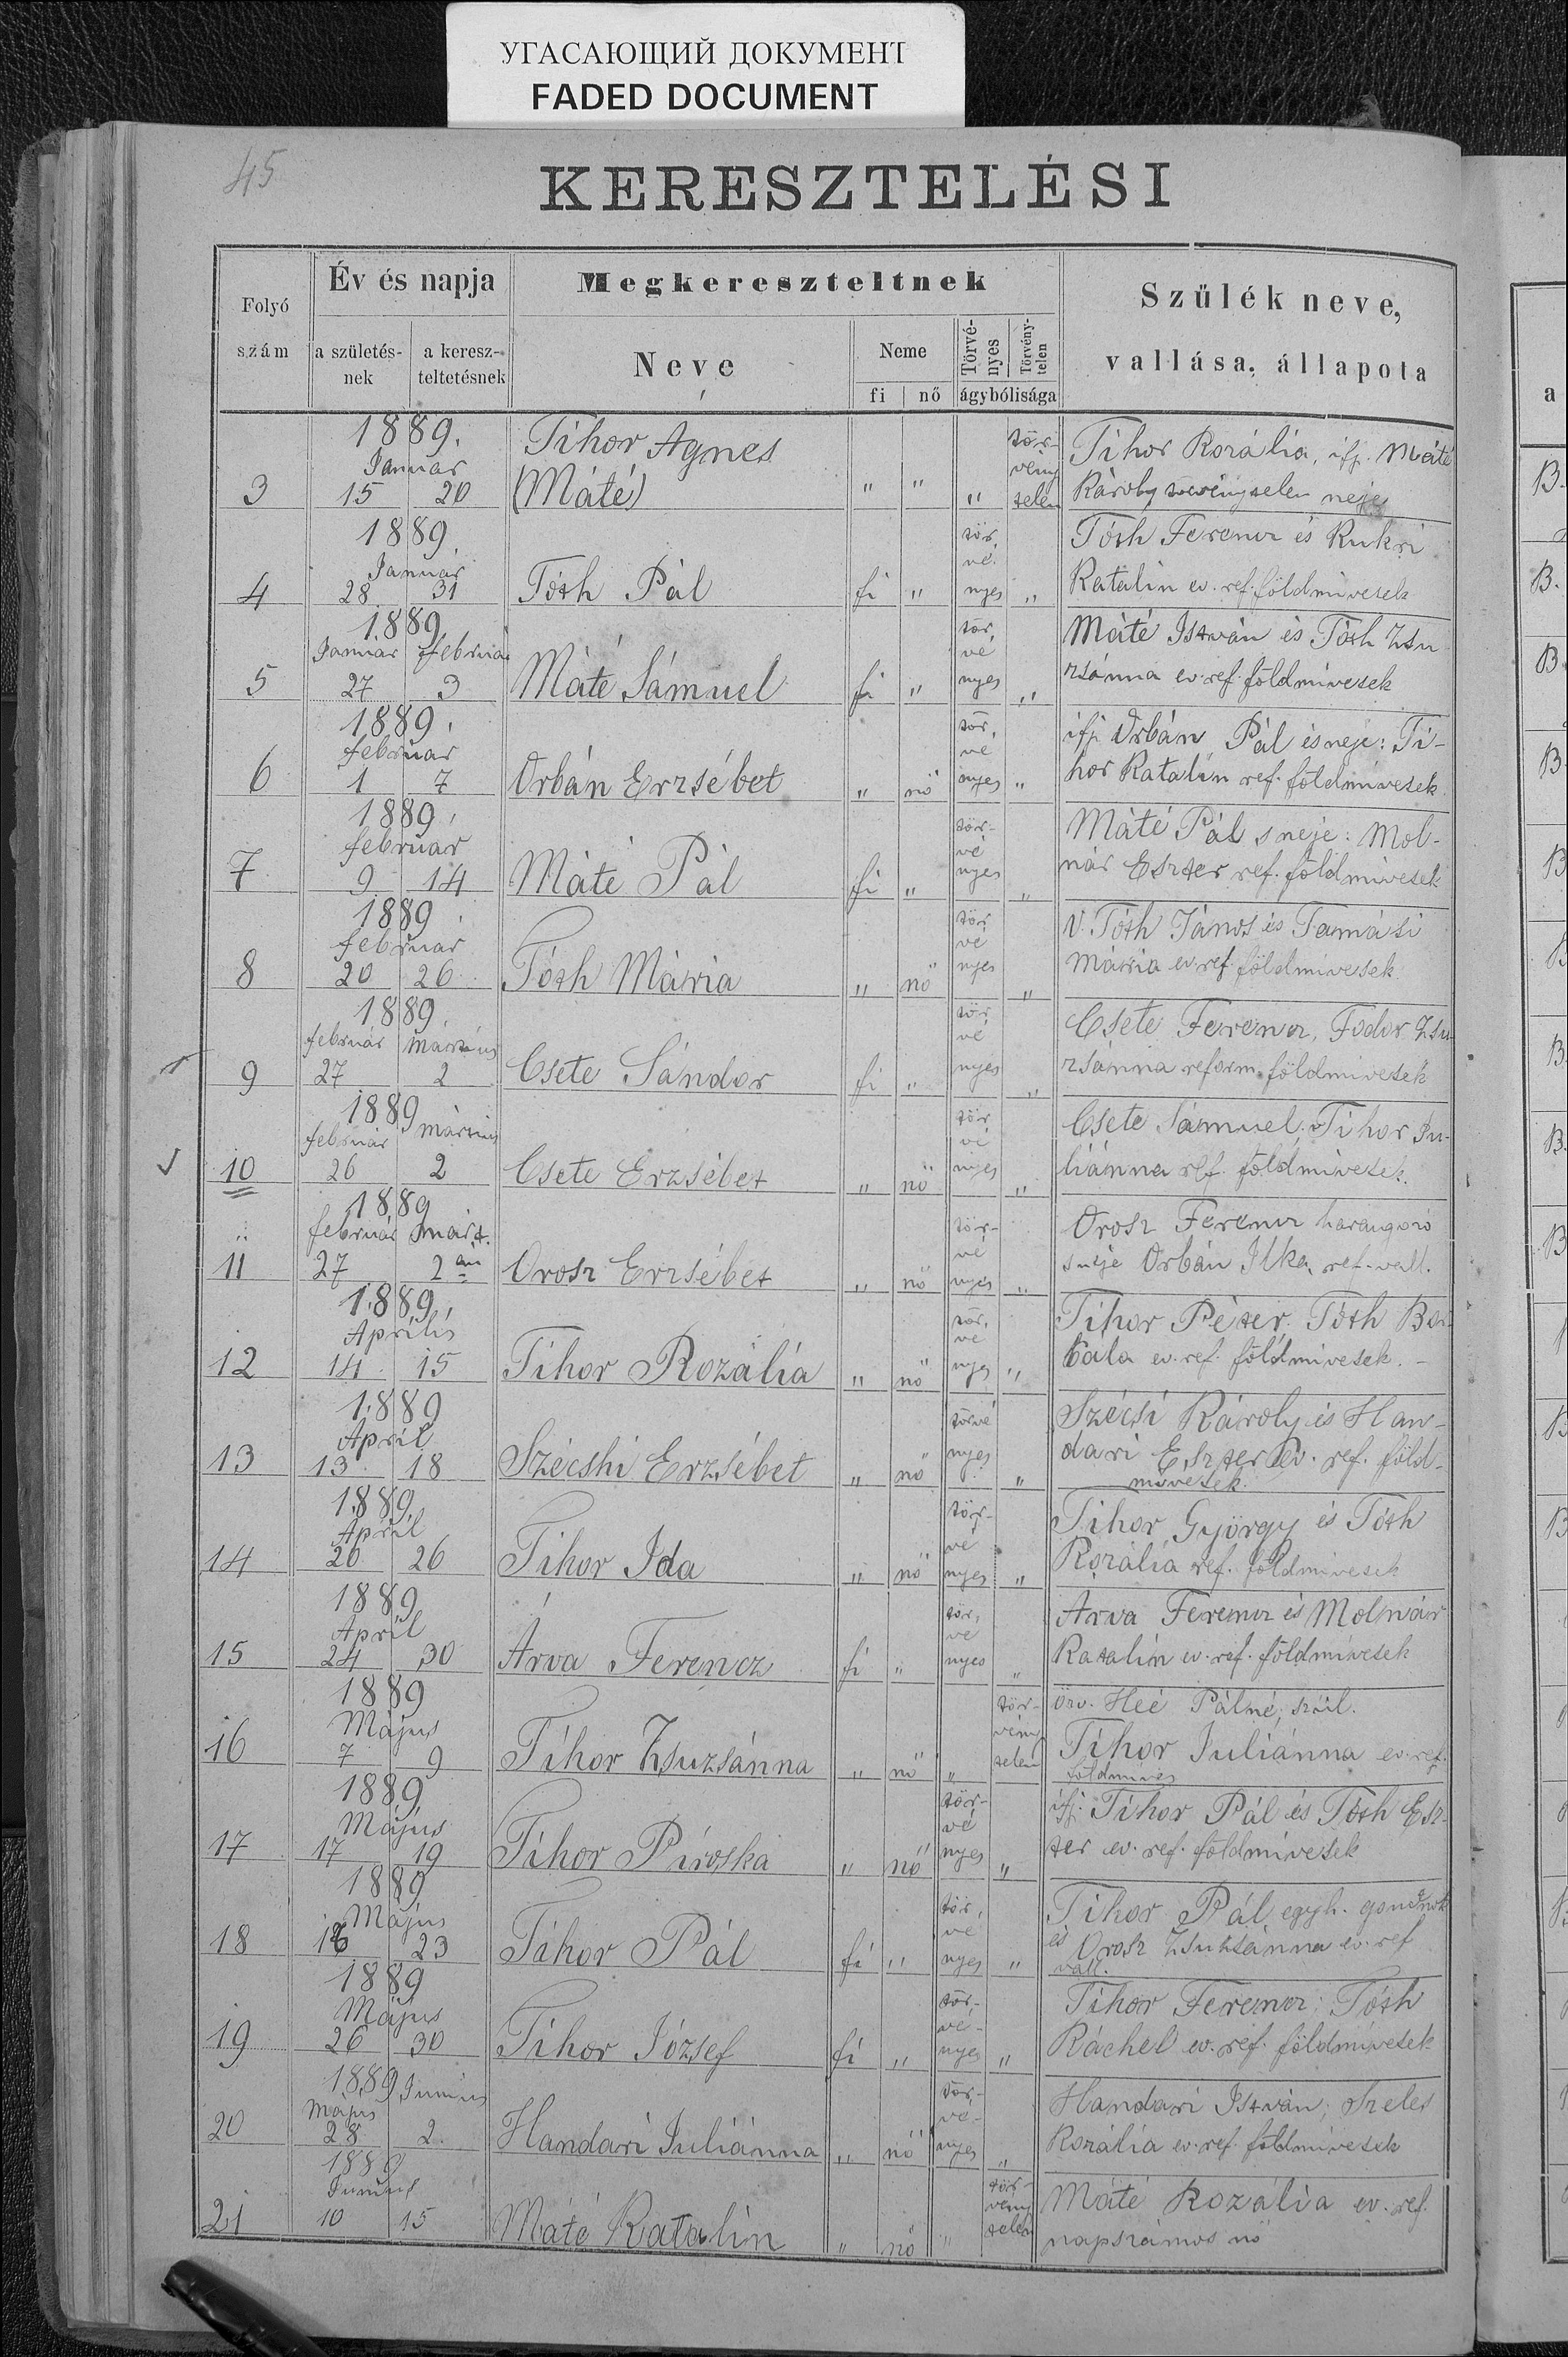 УГАСАЮЩИЙ ДОКУМЕНТ
FADED DOCUMENT
45
KERESZTELÉSI
Folyó szám
Év és napja
a születés-nek
a keresz-teltetésnek
Megkereszteltnek
Neve
Neme
fi nő
Törvé-nyes
Törvény-telen
ágybólisága
Szülék neve,
vallása, állapota
1889.
Januar
3 15 20 Tihor Agnes (Máté) " " " tör-vény telen Tihor Rozália, ifj. Máté
Károly törvénytelen neje
1889.
Januar
4 28 31 Tóth Pál fi " tör, vé. nyes " Tóth Ferencz és Kukri
Katalin ev. ref. földmivesek
1889
Január február
5 27 3 Máté Sámuel fi " tör, vé nyes " Máté István és Tóth Zsu
zsánna ev. ref. földmivesek
1889.
február
6 1 7 Orbán Erzsébet " nö tör, vé nyes " ifj. Orbán Pál és neje: Ti-
hor Katalin ref. földmivesek
1889.
február
7 9 14 Máté Pál fi " tör- vé nyes " Máté Pál s neje: Mol-
nár Eszter ref. földmivesek
1889.
február
8 20 26 Tóth Mária " nö tör vé nyes " V. Tóth János és Tamási
Mária ev. ref. földmivesek.
1889
február márczius
9 27 2 Csete Sándor fi " tör vé nyes " Csete Ferencz, Fodor Zsu
zsánna reform. földmivesek
1889
február március
10 26 2 Csete Erzsébet " nö tör vé nyes " Csete Sámuel, Tihor Ju-
liánna ref. földmivesek.
1889
február márt.
11 27 2 án Orosz Erzsébet " nö tör- vé nyes " Orosz Ferencz harangozó
s neje Orbán Ilka, ref. vall.
1889.
Április
12 14 15 Tihor Rozália " nö tör, vé nyes " Tihor Péter, Tóth Bor-
bála ev. ref. földmivesek.
1889
Apríl
13 13 18 Szécshi Erzsébet " nö törvé nyes " Szécsi Károly és Han-
dari Eszter ev. ref. föld-
mivesek
1889.
Apríl
14 20 26 Tihor Ida " nö tör- vé nyes " Tihor György és Tóth
Rozália ref. földmivesek
1889
Apríl
15 24 30 Árva Ferencz fi " tör, vé nyes " Arva Ferencz és Molnár
Katalin ev. ref. földmivesek
1889
Május
16 7 9 Tihor Zsuzsánna " nö " tör- vény telen özv. Heé Pálné, szül.
Tihor Juliánna ev. ref.
földmives
1889
Május
17 17 19 Tihor Piroska " nö tör- vé nyes " ifj. Tihor Pál és Tóth Esz-
ter ev. ref. földmivesek
1889
Május
18 18 23 Tihor Pál fi " tör, vé nyes " Tihor Pál, egyh. gondnok
és Orosz Zsuzsánna ev. ref
vall.
1889
Május
19 26 30 Tihor József fi " tör- vé- nyes " Tihor Ferencz; Tóth
Ráchel ev. ref. földmivesek
1889
Május Junius
20 28 2. Handari Juliánna " nö tör- vé- nyes " Handari István; Szeles
Rozália ev. ref. földmivesek
1889
Junius
21 10 15 Máté Katalin " nö " tör- vény telen Máté Rozália ev. ref.
napszámos nö
a
B.
B.
B
B
B
B
B
B.
B
B
B